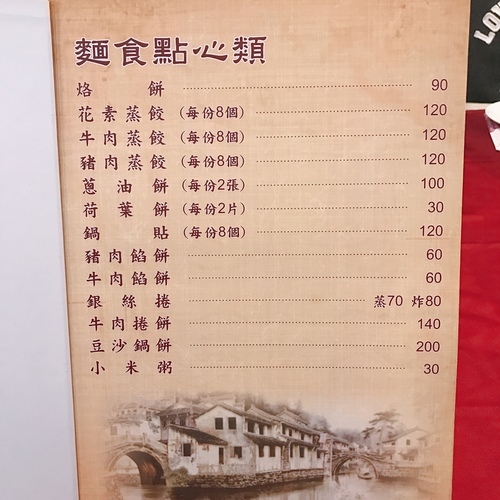 麵食點心類
烙餅 90
花素蒸餃(每份8個) 120
牛肉蒸餃(每份8個) 120
豬肉蒸餃(每份8個) 120
蔥油餅(每份2張) 100
荷葉餅(每份2片) 30
鍋貼(每份8個) 120
豬肉餡餅 60
牛肉餡餅 60
銀絲捲 蒸70 炸80
牛肉捲餅 140
豆沙鍋餅 200
小米粥 30